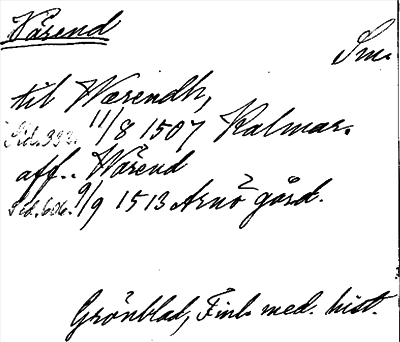 Värend
Sm.
til Wærendh,
Sid. 393. 11/8 1507 Kalmar.
aff.. Wärend
Sid. 606. 9/9 1513 Arnö gård.
Grönblad, Finl. med. hist.